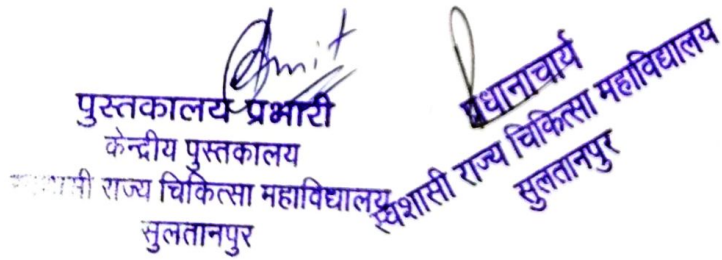 Amit
पुस्तकालय प्रभारी
केन्द्रीय पुस्तकालय
राज्य चिकित्सा महाविद्यालय
सुलतानपुर
प्रधानाचार्य
स्वशासी राज्य चिकित्सा महाविद्यालय
सुलतानपुर